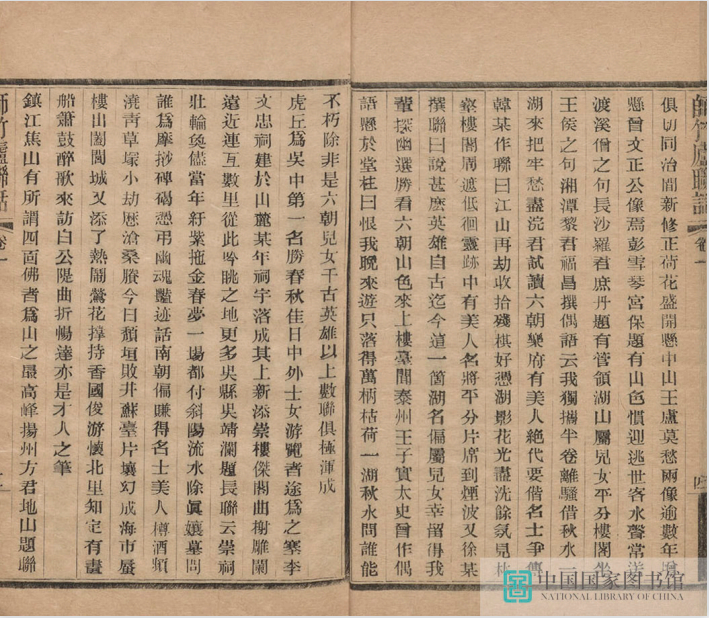 師竹廬聯話 卷一 四
俱切同治間新修正荷花盛開懸中山王盧莫愁兩像逾數年增
懸曾文正公像焉彭雪琴宮保題有山色慣迎逃世客水聲常送
渡溪僧之句長沙羅君庶丹題有管領湖山屬兒女平分樓閣坐
王侯之句湘潭黎君福昌撰偶語云我獨攜半卷離騷借秋水一
湖來把牢愁盡浣君試讀六朝樂府有美人絕代要偕名士爭傳
韓某作聯曰江山再劫收拾殘棋好憑湖影花光盡洗餘氛見
樓閣周遮低徊靈跡中有美人名將平分片席到煙波又徐某
撰聯曰說甚麽英雄自古迄今這一箇湖名偏屬兒女幸留得我
輩探幽選勝看六朝山色來上樓臺聞泰州王子實太史曾作偶
語懸於堂柱曰恨我晚來遊只落得萬柄枯荷一湖秋水問誰能
不朽除非是六朝兒女千古英雄以上數聯俱極渾成
虎丘爲吳中第一名勝春秋佳日中外士女游覽者途爲之塞李
文忠祠建於山麓某年祠宇落成其上新添崇樓傑閣曲榭雕闌
遠近連互數里從此吟眺之地更多吳縣吳靖瀾題長聯云崇祠
壯輪奐儘當年紆紫拖金春夢一場都付斜陽流水除眞孃墓問
誰爲摩挲碑碣慿弔幽魂豔迹話南朝偏賺得名士美人樽酒頻
澆靑草塚小劫歷滄桑賸今日頹垣敗井蘇臺片壤幻成海市蜃
樓出闔閭城又添了熱鬧鶯花擰持香國俊游懷北里知定有畫
船簫鼓醉歌來訪白公隄曲折暢達亦是才人之筆
鎮江焦山有所謂四面佛者爲山之最高峰揚州方君地山題聯
師竹廬聯話 卷一
中国国家图书馆
NATIONAL LIBRARY OF CHINA